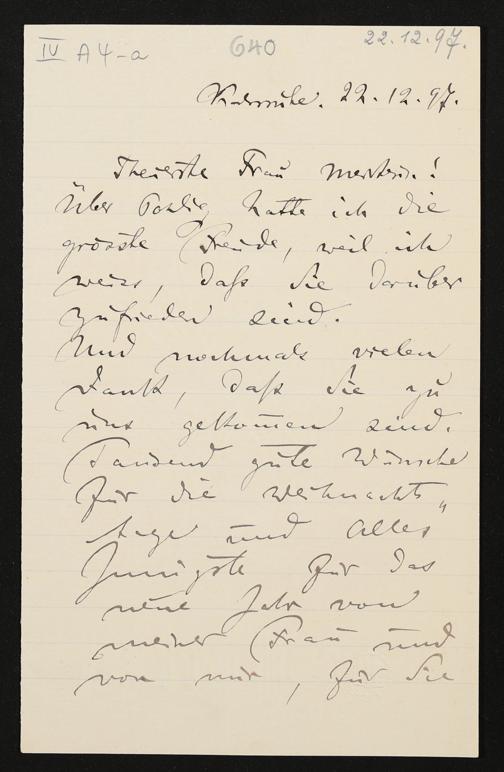 IV A4-a 640 22.12.97.
Karlsruhe. 22.12.97.
Theuerste Frau Meisterin!
Über Pohlig hatte ich die
grösste Freude, weil ich
weiss, daß Sie darüber
zufrieden sind.
Und nochmals vielen
Dank, daß Sie zu
uns gekom̄en sind.
Tausend gute Wünsche
für die Weihnachts„
tage und Alles
Innigste für das
neue Jahr von
meiner Frau und
von mir, für Sie